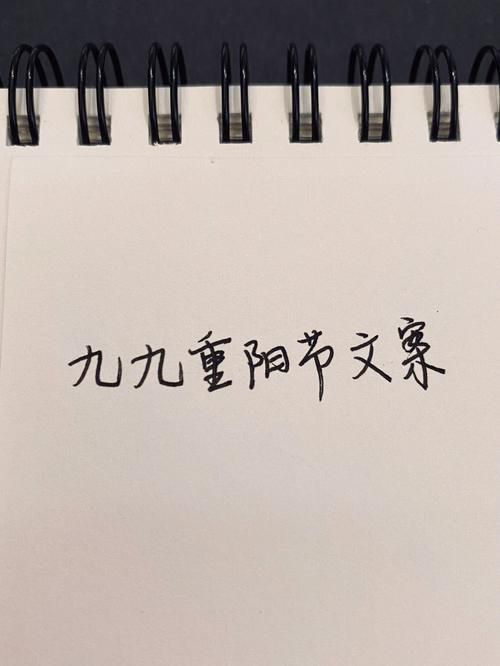 九九重阳节文案